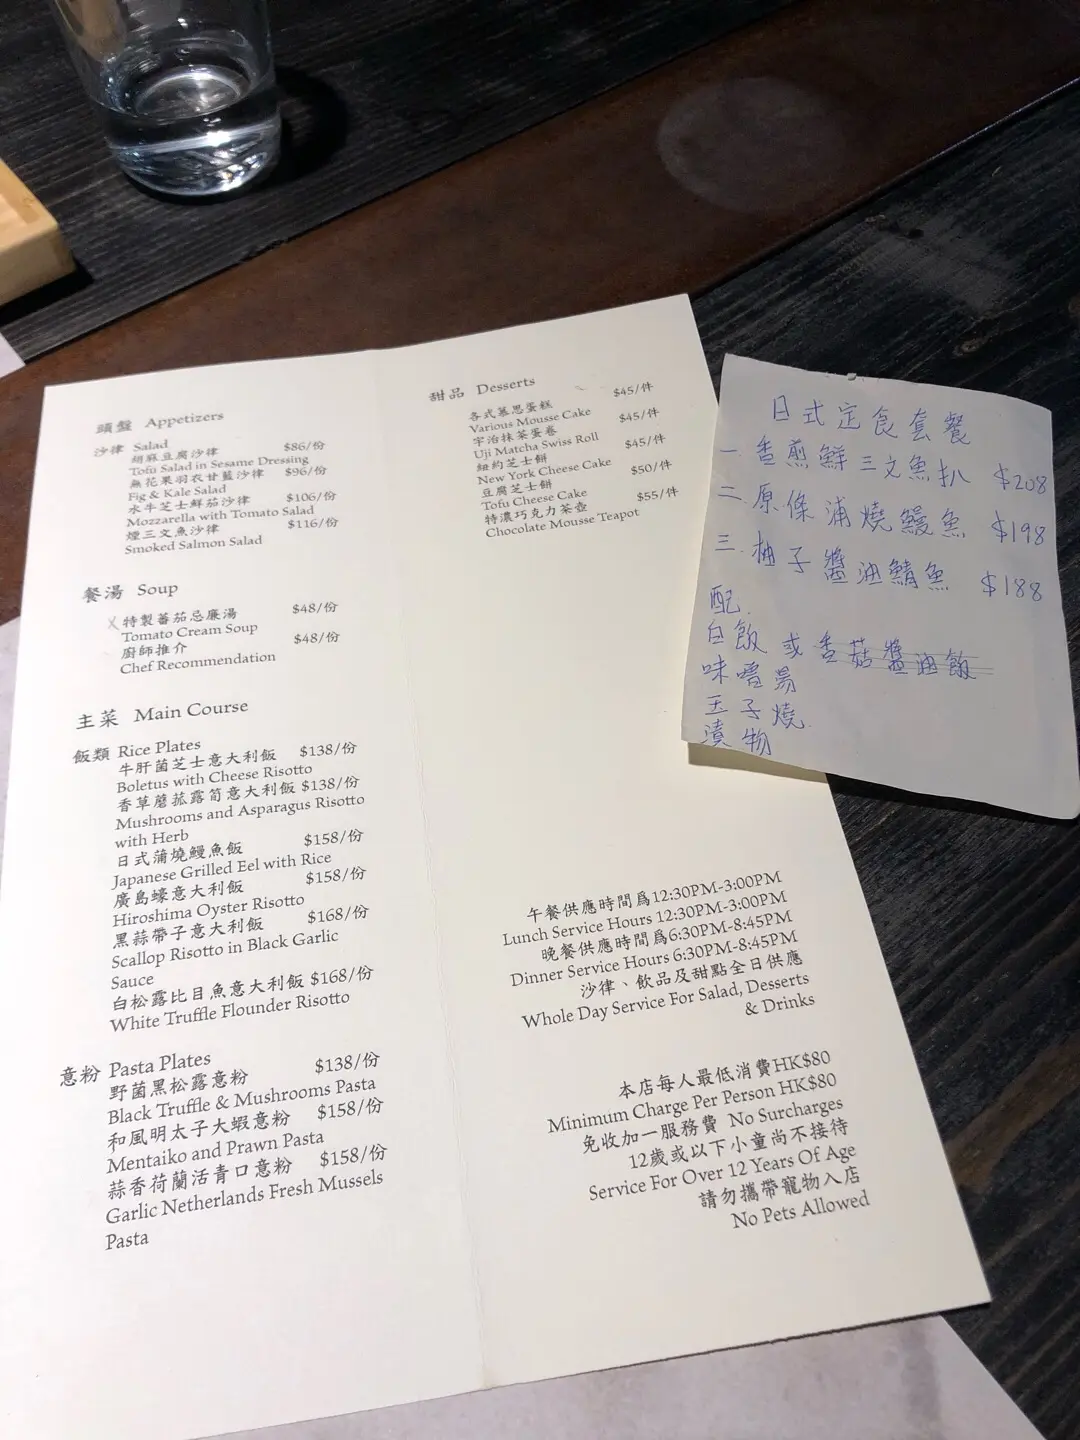 頭盤 Appetizers
沙律 Salad
胡麻豆腐沙律 $86/份
Tofu Salad in Sesame Dressing
無花果羽衣甘藍沙律 $96/份
Fig & Kale Salad
水牛芝士鮮茄沙律 $106/份
Mozzarella with Tomato Salad
煙三文魚沙律 $116/份
Smoked Salmon Salad
餐湯 Soup
X 特製蕃茄忌廉湯 $48/份
Tomato Cream Soup
廚師推介 $48/份
Chef Recommendation
主菜 Main Course
飯類 Rice Plates
牛肝菌芝士意大利飯 $138/份
Boletus with Cheese Risotto
香草蘑菰露筍意大利飯 $138/份
Mushrooms and Asparagus Risotto
with Herb
日式蒲燒鰻魚飯 $158/份
Japanese Grilled Eel with Rice
廣島蠔意大利飯 $158/份
Hiroshima Oyster Risotto
黑蒜帶子意大利飯 $168/份
Scallop Risotto in Black Garlic
Sauce
白松露比目魚意大利飯 $168/份
White Truffle Flounder Risotto
意粉 Pasta Plates
野菌黑松露意粉 $138/份
Black Truffle & Mushrooms Pasta
和風明太子大蝦意粉 $158/份
Mentaiko and Prawn Pasta
蒜香荷蘭活青口意粉 $158/份
Garlic Netherlands Fresh Mussels
Pasta
甜品 Desserts
各式慕思蛋糕 $45/件
Various Mousse Cake
宇治抹茶蛋卷 $45/件
Uji Matcha Swiss Roll
紐約芝士餅 $45/件
New York Cheese Cake
豆腐芝士餅 $50/件
Tofu Cheese Cake
特濃巧克力茶壺 $55/件
Chocolate Mousse Teapot
午餐供應時間爲12:30PM-3:00PM
Lunch Service Hours 12:30PM-3:00PM
晚餐供應時間爲6:30PM-8:45PM
Dinner Service Hours 6:30PM-8:45PM
沙律、飲品及甜點全日供應
Whole Day Service For Salad, Desserts
& Drinks
本店每人最低消費HK$80
Minimum Charge Per Person HK$80
免收加一服務費 No Surcharges
12歲或以下小童尚不接待
Service For Over 12 Years Of Age
請勿攜帶寵物入店
No Pets Allowed
日式定食套餐
一.香煎鮮三文魚扒 $208
二.原條蒲燒鰻魚 $198
三.柚子醬油鯖魚 $188
配.
白飯或香菇醬油飯
味噌湯
玉子燒.
漬物